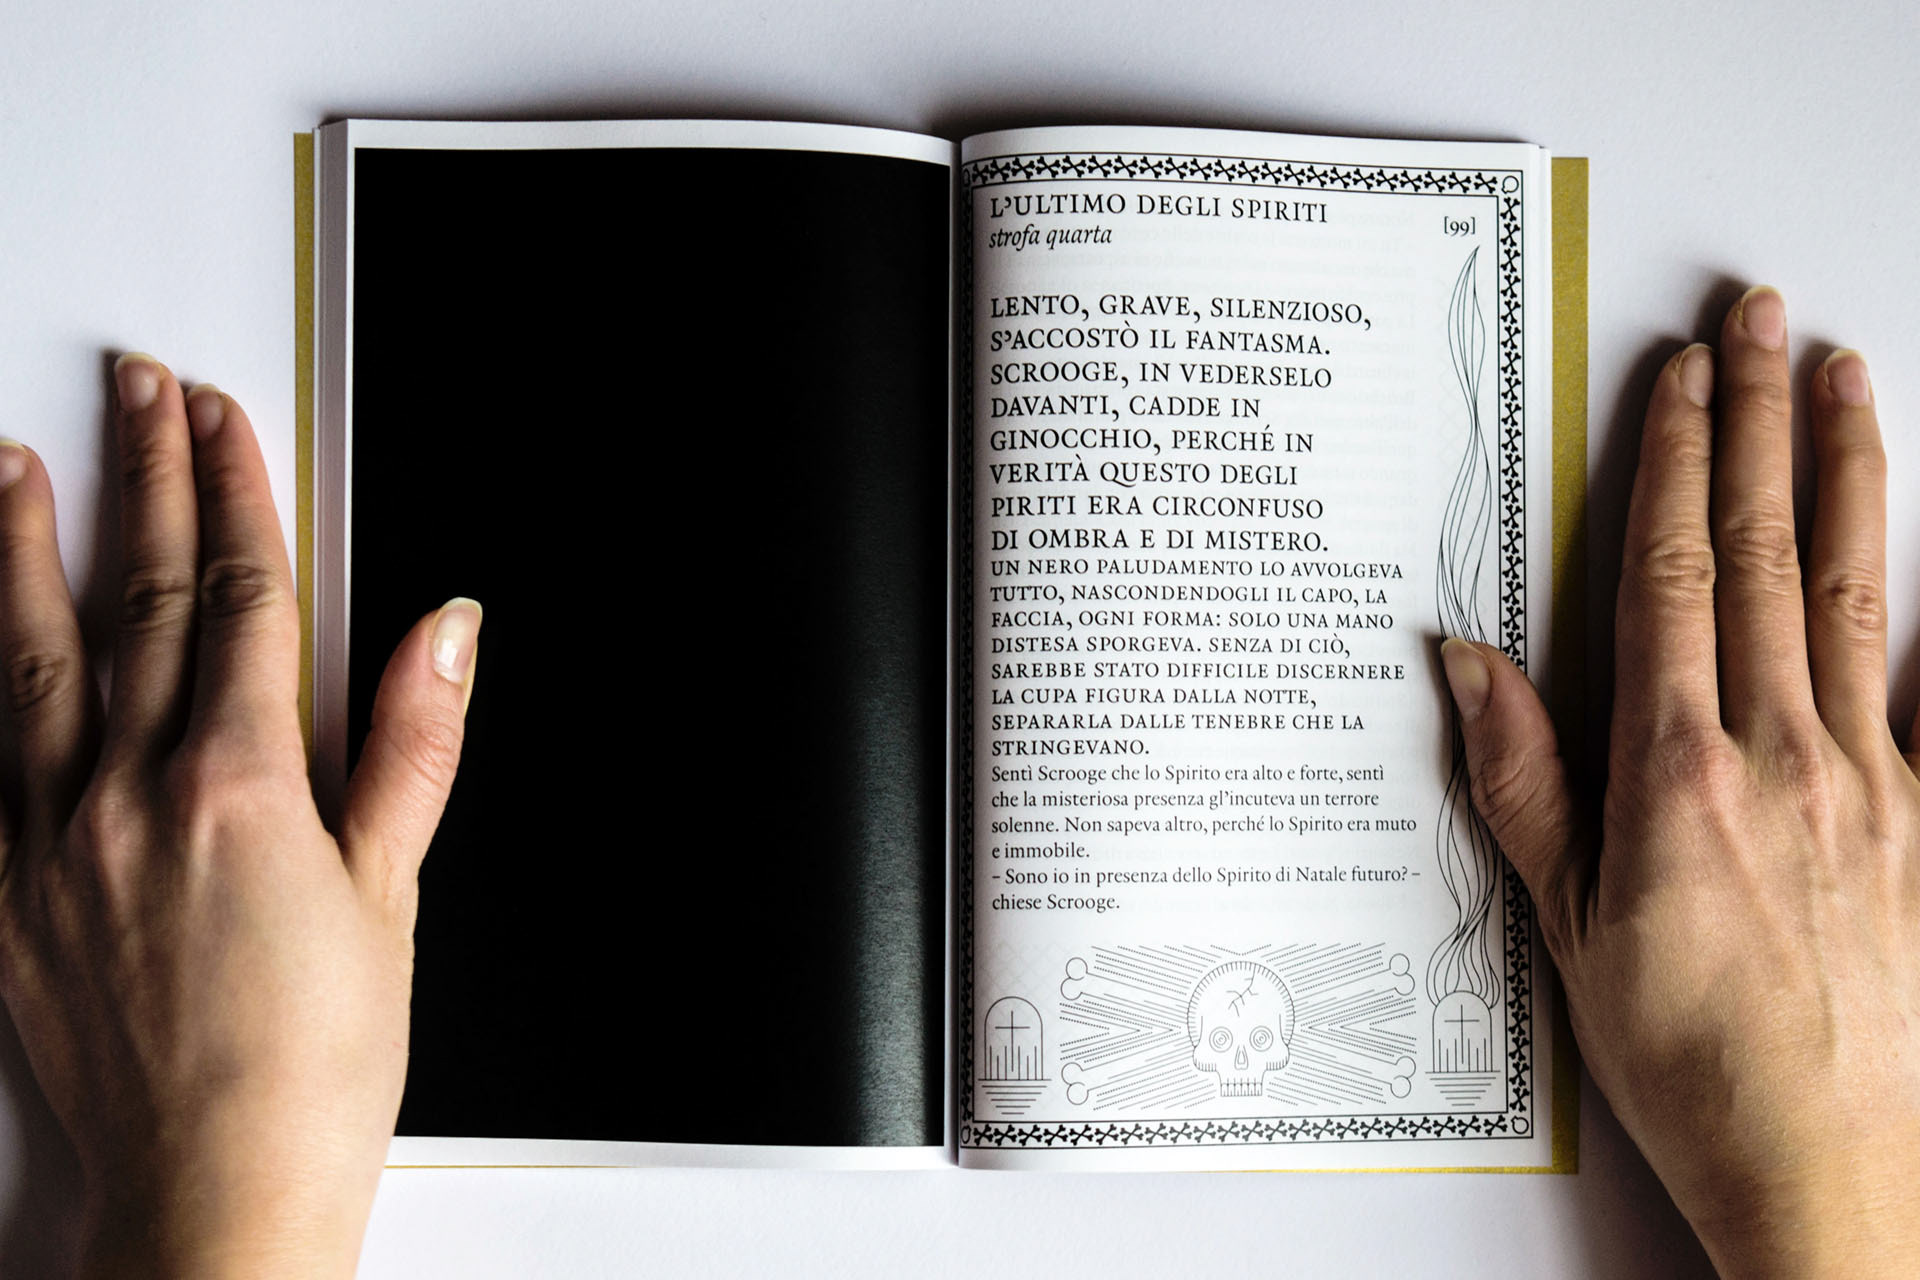 L'ULTIMO DEGLI SPIRITI
strofa quarta
[99]
LENTO, GRAVE, SILENZIOSO,
S'ACCOSTÒ IL FANTASMA.
SCROOGE, IN VEDERSELO
DAVANTI, CADDE IN
GINOCCHIO, PERCHÉ IN
VERITÀ QUESTO DEGLI
PIRITI ERA CIRCONFUSO
DI OMBRA E DI MISTERO.
UN NERO PALUDAMENTO LO AVVOLGEVA
TUTTO, NASCONDENDOGLI IL CAPO, LA
FACCIA, OGNI FORMA: SOLO UNA MANO
DISTESA SPORGEVA. SENZA DI CIÒ,
SAREBBE STATO DIFFICILE DISCERNERE
LA CUPA FIGURA DALLA NOTTE,
SEPARARLA DALLE TENEBRE CHE LA
STRINGEVANO.
Sentì Scrooge che lo Spirito era alto e forte, sentì
che la misteriosa presenza gl'incuteva un terrore
solenne. Non sapeva altro, perché lo Spirito era muto
e immobile.
– Sono io in presenza dello Spirito di Natale futuro? –
chiese Scrooge.